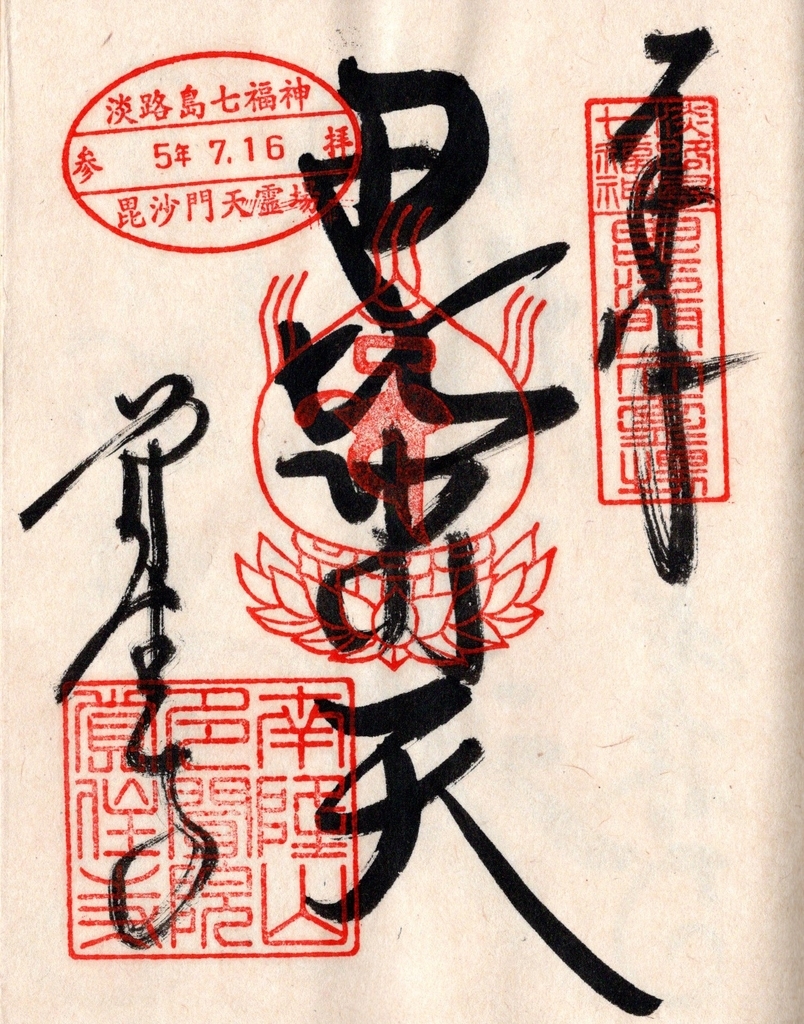 淡路島七福神
参 5年 7.16 拝
毘沙門天霊場
奉
毘沙門天
覚住寺
淡路島
七福神
南陸山